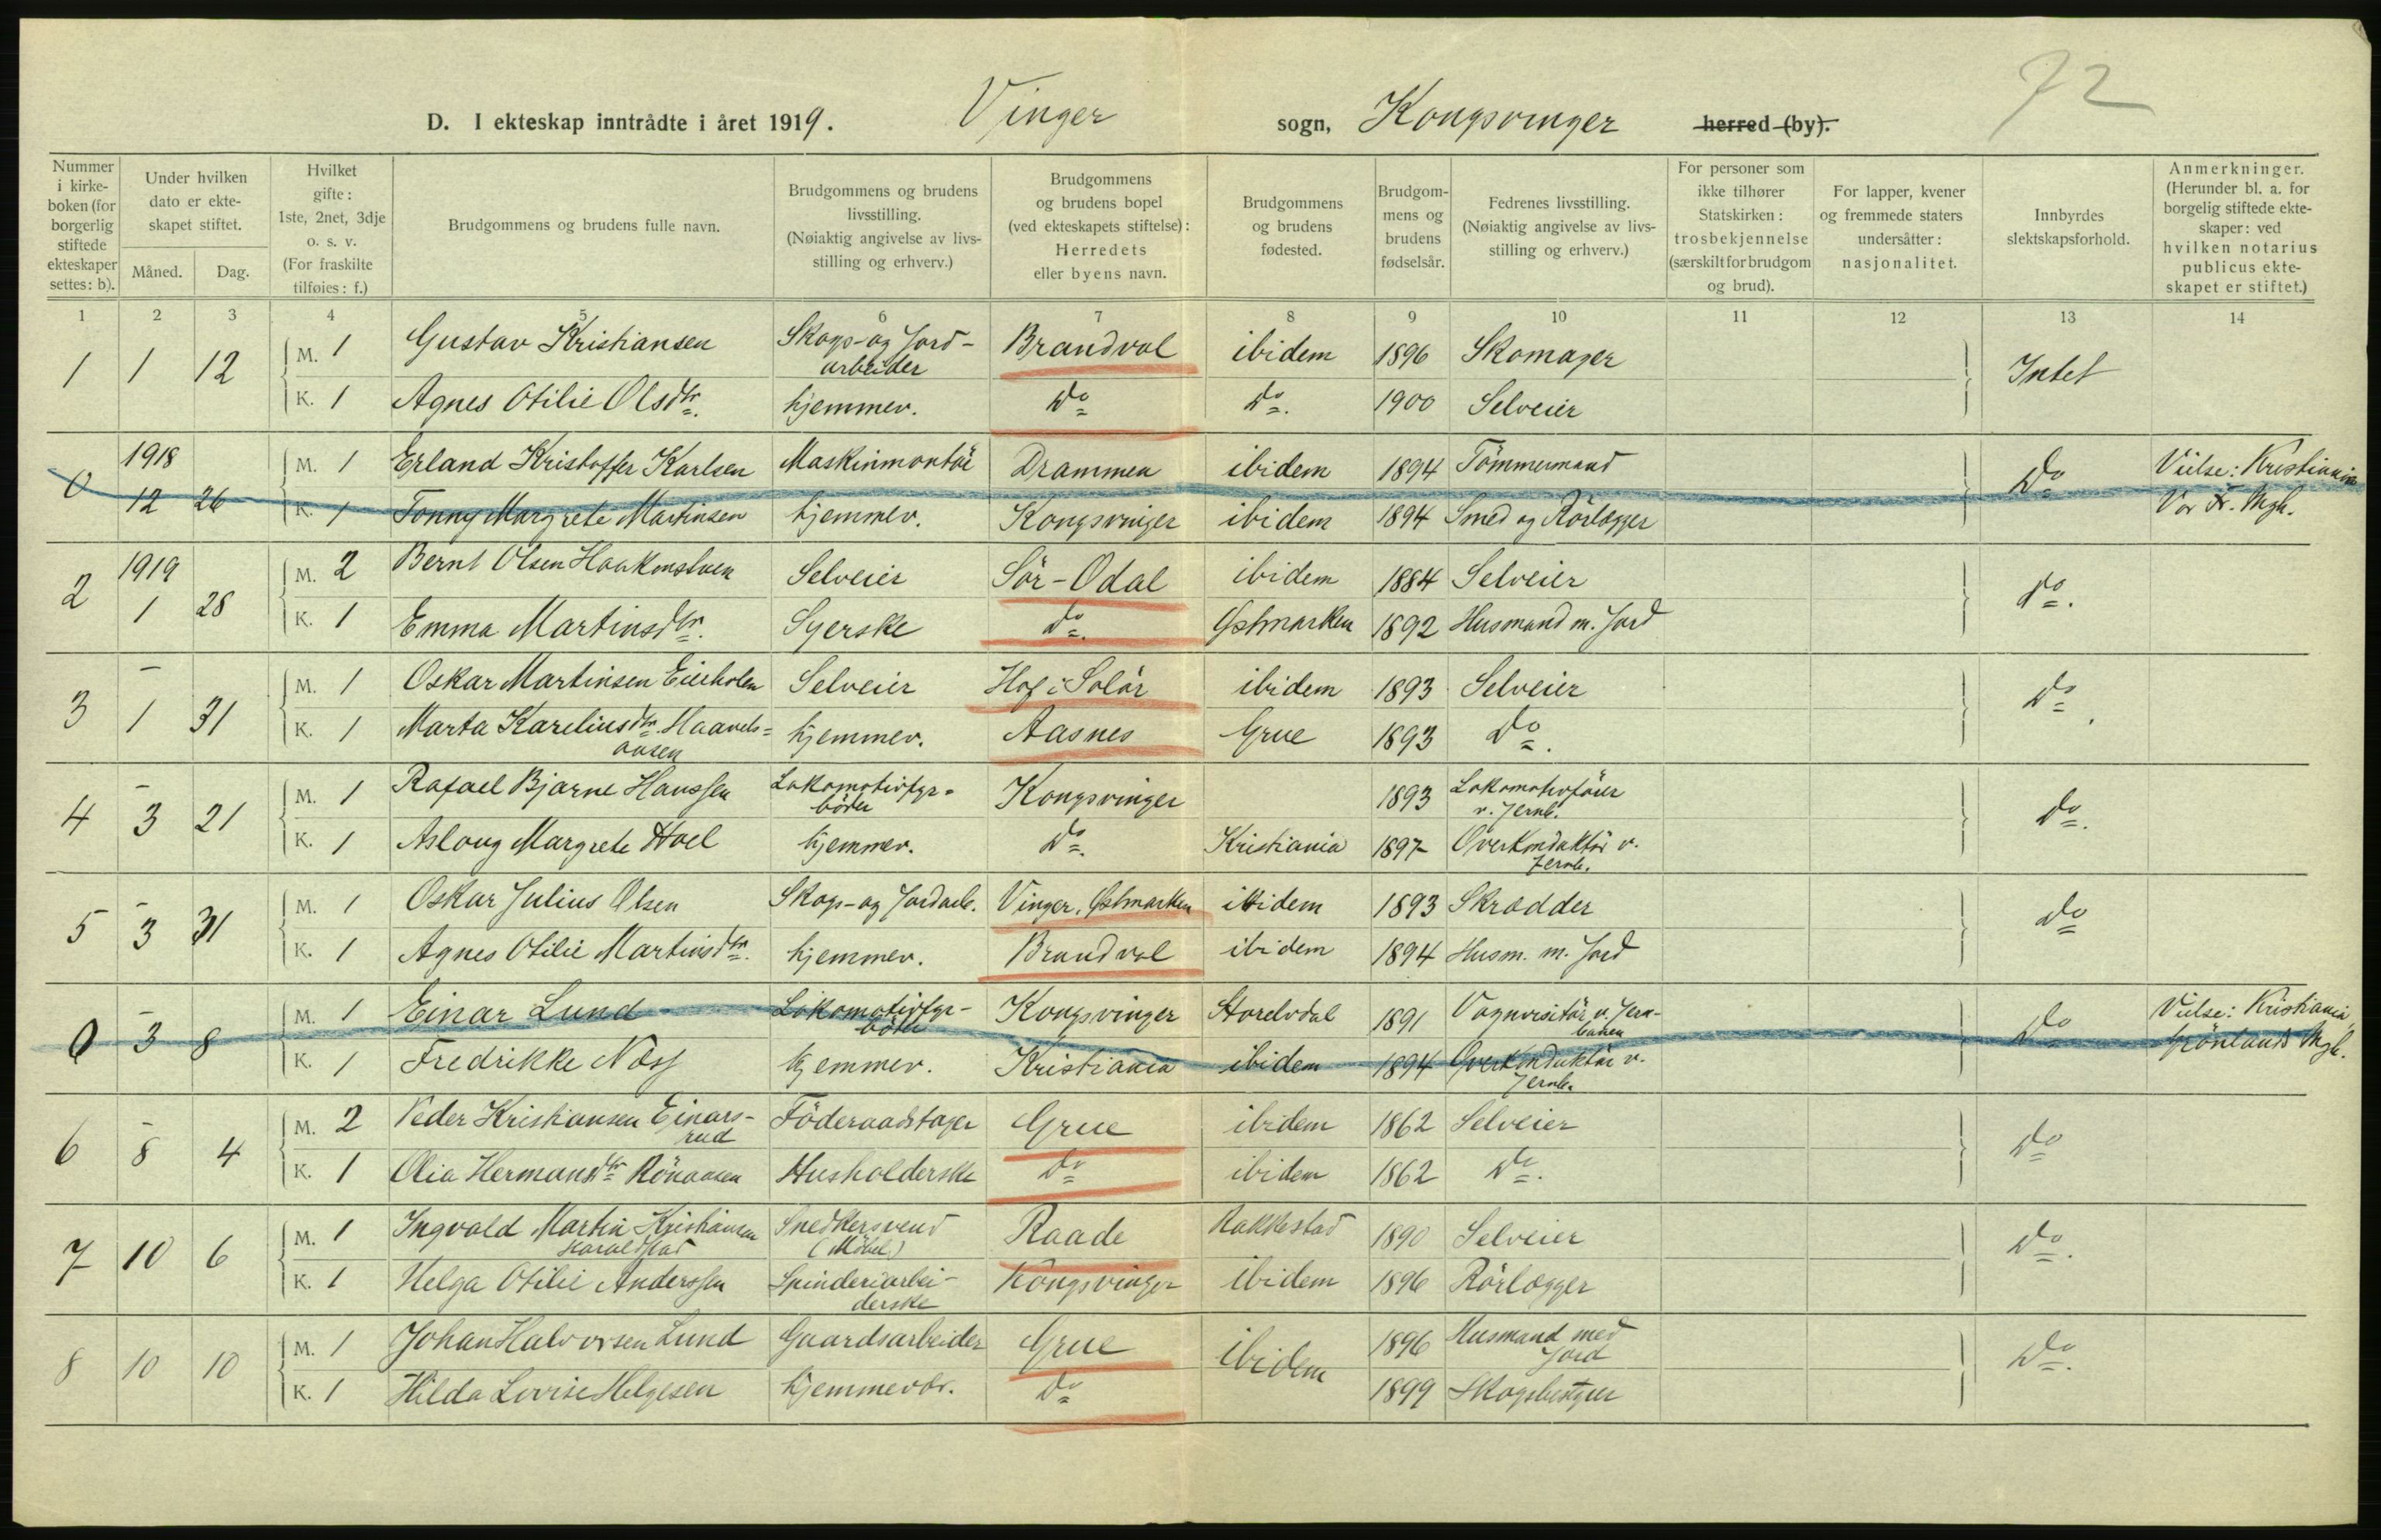 72
D. I ekteskap inntrådte i året 1919. Vinger sogn, Kongsvinger herred (by).
Nummer i kirkeboken (for borgerlig stiftede ekteskaper settes: b).
Under hvilken dato er ekteskapet stiftet.
Måned. Dag.
Hvilket gifte: 1ste, 2net, 3dje o. s. v. (For fraskilte tilføies: f.)
Brudgommens og brudens fulle navn.
Brudgommens og brudens livsstilling. (Nøiaktig angivelse av livsstilling og erhverv.)
Brudgommens og brudens bopel (ved ekteskapets stiftelse): Herredets eller byens navn.
Brudgommens og brudens fødested.
Brudgommens og brudens fødselsår.
Fedrenes livsstilling. (Nøiaktig angivelse av livsstilling og erhverv.)
For personer som ikke tilhører Statskirken: trosbekjennelse (særskilt for brudgom og brud).
For lapper, kvener og fremmede staters undersåtter: nasjonalitet.
Innbyrdes slektskapsforhold.
Anmerkninger. (Herunder bl. a. for borgelig stiftede ekteskaper: ved hvilken notarius publicus ekteskapet er stiftet.)
1 2 3 4 5 6 7 8 9 10 11 12 13 14
1 1 12 M. 1 Gustav Kristiansen Skogs- og Jord-arbeider Brandvol ibidem 1896 Skomager Intet
K. 1 Agnes Otilie Olsdtr. hjemmev. Do Do. 1900 Selveier
0 1918 12 26 M. 1 Erland Kristoffer Karlsen Maskinmontör Drammen ibidem 1894 Tömmermand Do Vielse: Kristiania
K. 1 Tonny Margrete Martinsen hjemmev. Kongsvinger ibidem 1894 Smed og Rörlægger Vor Fr. Mgh.
2 1919 1 28 M. 2 Bernt Olsen Haakonstuen Selveier Sör-Odal ibidem 1884 Selveier do.
K. 1 Emma Martinsdtr. Syerske do. Østmarken 1892 Husmand m. Jord
3 – 1 31 M. 1 Oskar Martinsen Eierholen Selveier Hof i Solör ibidem 1893 Selveier Do.
K. 1 Marta Kareliusdtr. Haavels=aasen hjemmev. Aasnes Grue 1893 Do.
4 – 3 21 M. 1 Rafael Bjarne Hanssen Lokomotivfyr=böder Kongsvinger 1893 Lokomotivförer v. Jernb. do.
K. 1 Aslaug Margrete Hoel hjemmev. do. Kristiania 1897 Overkonduktör v. Jernb.
5 – 3 31 M. 1 Oskar Julius Olsen Skogs- og Jordarb. Vinger, Østmarken ibidem 1893 Skrædder do
K. 1 Agnes Otilie Martinsdtr. hjemmev. Brandvol ibidem 1894 Husm. m. Jord
0 – 3 8 M. 1 Einar Lund Lokomotivfyr-böder Kongsvinger Storelvdal 1891 Vognvisitör v. Jern-banen Do Vielse: Kristiania
K. 1 Fredrikke Næss hjemmev. Kristiania ibidem 1894 Overkonduktör v. Jernb. Grönlands Mgh.
6 – 8 4 M. 2 Peder Kristiansen Einars-rud Föderaadstager Grue ibidem 1862 Selveier do
K. 1 Olia Hermansdtr Rönaasen Husholderske Do ibidem 1862 Do.
7 10 6 M. 1 Ingvald Martin Kristiansen Haraldstad Snedkersvend (Möbel) Raade Rakkestad 1890 Selveier do.
K. 1 Helga Otilie Anderssen Spinderiarbei-derske Kongsvinger ibidem 1896 Rörlægger
8 10 10 M. 1 Johan Halvorsen Lund Gaardsarbeider Grue ibidem 1896 Husmand med Jord Do.
K. 1 Hilda Lovise Helgesen hjemmevær. Do 1899 Skogsbestyrer